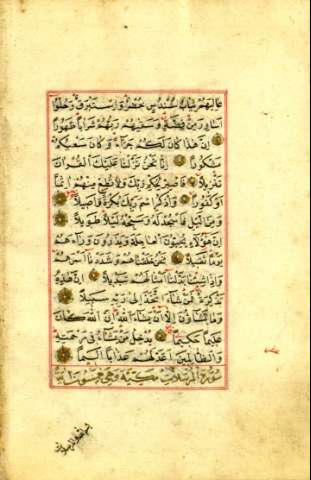 عَالِيَهُمْ ثِيَابُ سُنْدُسٍ خُضْرٌ وَاِسْتَبْرَقٌ وَحُلُّوا
اَسَاوِرَ مِنْ فِضَّةٍ وَسَقٰيهُمْ رَبُّهُمْ شَرَابًا طَهُورًا
اِنَّ هٰذَا كَانَ لَكُمْ جَزَاءً وَكَانَ سَعْيُكُمْ
مَشْكُورًا اِنَّا نَحْنُ نَزَّلْنَا عَلَيْكَ الْقُرْاٰنَ
تَنْزِيلًا فَاصْبِرْ لِحُكْمِ رَبِّكَ وَلَا تُطِعْ مِنْهُمْ اٰثِمًا
اَوْ كَفُورًا وَاذْكُرِ اسْمَ رَبِّكَ بُكْرَةً وَاَصِيلًا
وَمِنَ الَّيْلِ فَاسْجُدْ لَهُ وَسَبِّحْهُ لَيْلًا طَوِيلًا
اِنَّ هٰؤُلَاءِ يُحِبُّونَ الْعَاجِلَةَ وَيَذَرُونَ وَرَاءَهُمْ
يَوْمًا ثَقِيلًا نَحْنُ خَلَقْنَاهُمْ وَشَدَدْنَا اَسْرَهُمْ
وَاِذَا شِئْنَا بَدَّلْنَا اَمْثَالَهُمْ تَبْدِيلًا اِنَّ هٰذِهِ
تَذْكِرَةٌ فَمَنْ شَاءَ اتَّخَذَ اِلٰى رَبِّهِ سَبِيلًا
وَمَا تَشَاؤُنَ اِلَّا اَنْ يَشَاءَ اللّٰهُ اِنَّ اللّٰهَ كَانَ
عَلِيمًا حَكِيمًا يُدْخِلُ مَنْ يَشَاءُ فِي رَحْمَتِهِ
وَالظَّالِمِينَ اَعَدَّ لَهُمْ عَذَابًا اَلِيمًا
سورة المرسلات مكية وهي خمسون اية